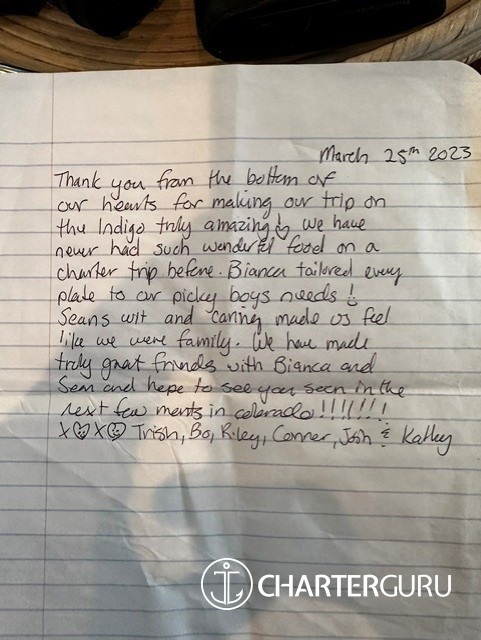 March 25th 2023
Thank you from the bottom of
our hearts for making our trip on
the Indigo truly amazing! We have
never had such wonderful food on a
charter trip before. Bianca tailored every
plate to our picky boys needs!
Seans wit and caring made us feel
like we were family. We have made
truly great friends with Bianca and
Sean and hope to see you soon in the
next few months in colorado!!!!!!!
X♡X♡ Trish, Bo, Riley, Conner, Josh & Kathy
CHARTERGURU